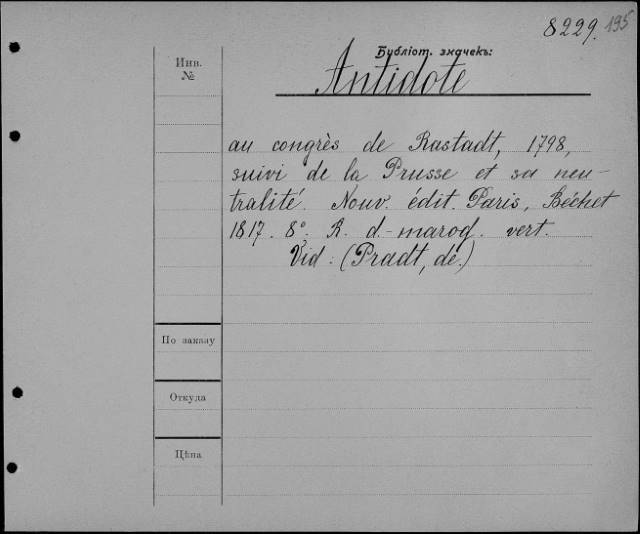 8229. 195
Библіот. значекъ:
Инв.
№
Antidote
au congrès de Rastadt, 1798,
suivi de la Prusse et sa neu-
tralité. Nouv. édit. Paris, Béchet
1817. 8°. R. d.-maroq. vert.
Vid: (Pradt, de.)
По заказу
Откуда
Цѣна